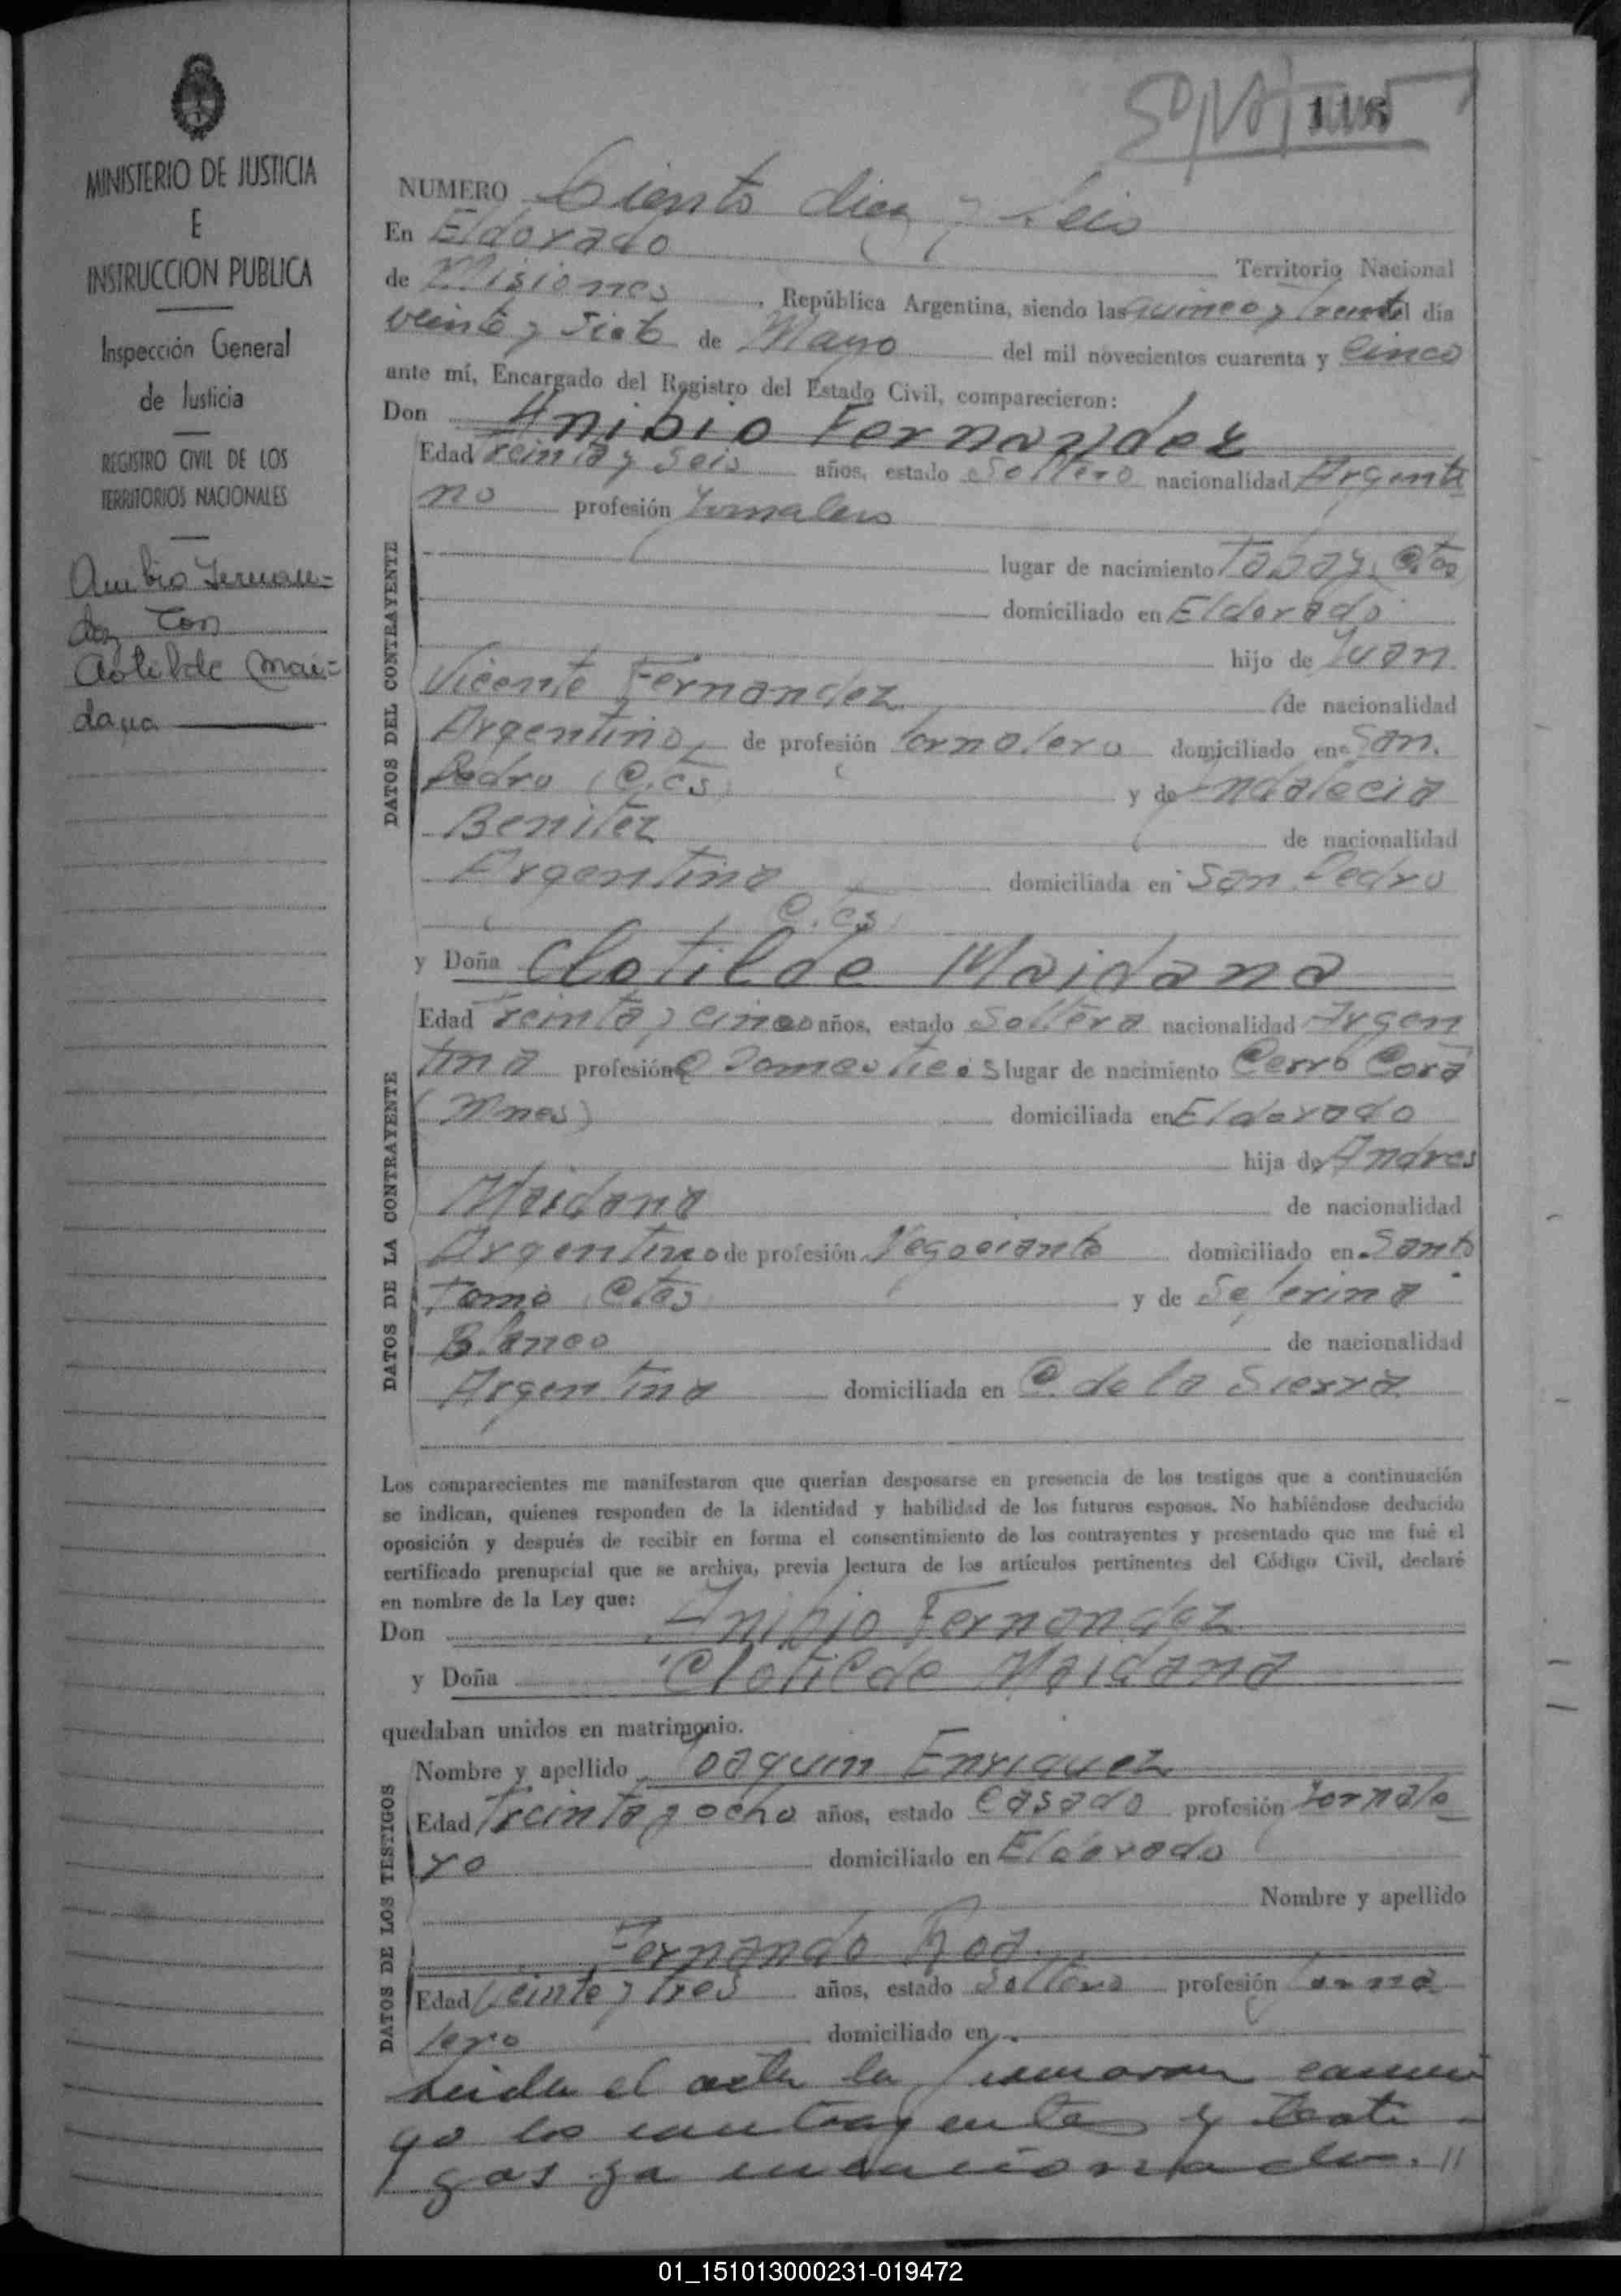 116
MINISTERIO DE JUSTICIA
E
INSTRUCCION PUBLICA
Inspección General
de Justicia
REGISTRO CIVIL DE LOS
TERRITORIOS NACIONALES
Anibio Fernan=
dez con
Clotilde Mai=
dana
NUMERO Ciento diez y seis
En Eldorado
Territorio Nacional
de Misiones, República Argentina, siendo las quince y treinta el día
veinte y siete de Mayo del mil novecientos cuarenta y cinco
ante mí, Encargado del Registro del Estado Civil, comparecieron:
Don Anibio Fernandez
DATOS DEL CONTRAYENTE
Edad treinta y seis años, estado soltero nacionalidad Argenti
no profesión Jornalero
lugar de nacimiento Tabay, Ctes
domiciliado en Eldorado
hijo de Juan
Vicente Fernandez
de nacionalidad
Argentino, de profesión Jornalero domiciliado en San
Pedro (C.tes) y de Indalecia
Benitez
de nacionalidad
Argentina domiciliada en San Pedro
C.tes
y Doña Clotilde Maidana
DATOS DE LA CONTRAYENTE
Edad treinta y cinco años, estado soltera nacionalidad Argen
tina profesión Q Domesticos lugar de nacimiento Cerro Corá
(Mnes) domiciliada en Eldorado
hija de Andres
Maidana de nacionalidad
Argentino de profesión Negociante domiciliado en Santo
Tomé Ctes y de Seferina
Blanco de nacionalidad
Argentina domiciliada en C. de la Sierra
Los comparecientes me manifestaron que querían desposarse en presencia de los testigos que a continuación
se indican, quienes responden de la identidad y habilidad de los futuros esposos. No habiéndose deducido
oposición y después de recibir en forma el consentimiento de los contrayentes y presentado que me fué el
certificado prenupcial que se archiva, previa lectura de los artículos pertinentes del Código Civil, declaré
en nombre de la Ley que:
Don Anibio Fernandez
y Doña Clotilde Maidana
quedaban unidos en matrimonio.
DATOS DE LOS TESTIGOS
Nombre y apellido Joaquin Enriquez
Edad Treinta y ocho años, estado Casado profesión Jornale
ro domiciliado en Eldorado
Nombre y apellido
Fernando Roa
Edad Veinte y tres años, estado Soltero profesión Jorna
lero domiciliado en
Leida el acta la firmaron conmi
go los contrayentes y testi-
gos ya mencionados. //
01_151013000231-019472